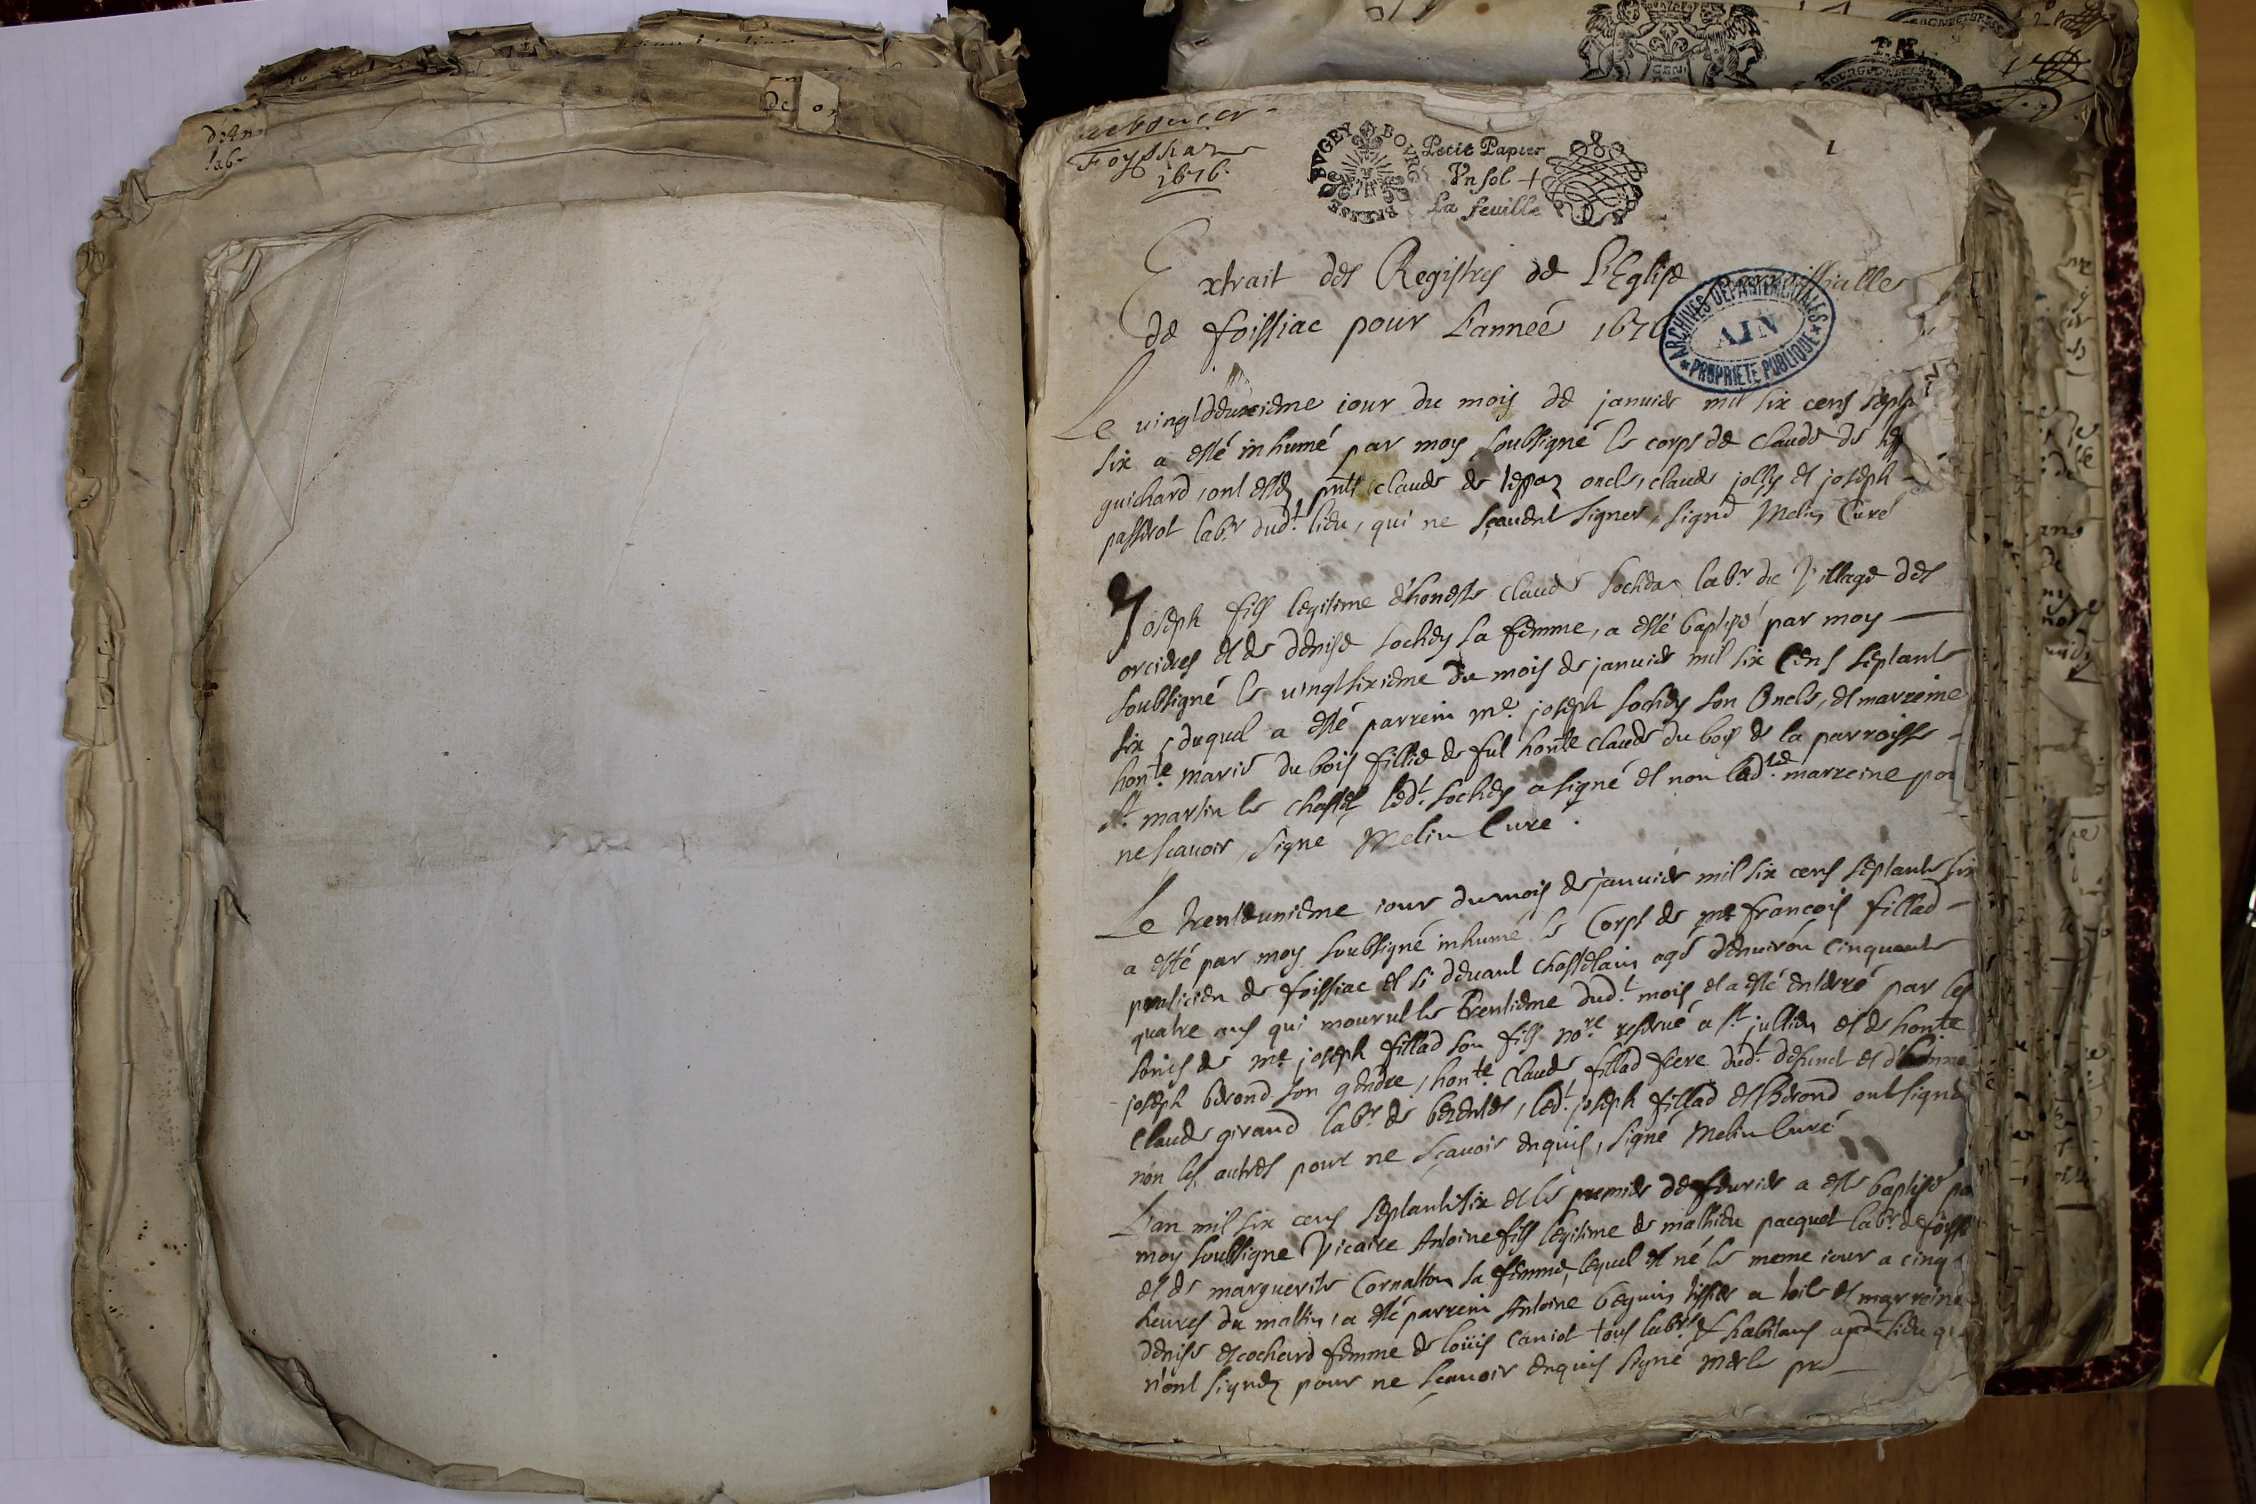 Foyssiaz
1676.
BVGEY BOVRG BRESSE
Petit Papier
Vn sol +
La feuille
1
Extrait des Registres de l'Eglise
de foissiac pour L'anneé 1676
ARCHIVES DEPARTEMENTALES
AIN
PROPRIETE PUBLIQUE
Le uingtdeuxieme iour du mois de januier mil six cens
six a esté inhumé par moy soubsigné le corps de claude de
guichard, ont estez pnts claude de oncle, claude jolly et joseph
passerot labr dudt lieu, qui ne sçauent signer, signé Melin Curé
Joseph fils legitime d'honeste claude labr du Village des
orcieres et de denise sochey sa femme, a esté baptisé par moy
soubsigné le uingtsixieme du mois de januier mil six Cens septante
six, duquel a esté parrein me. joseph sochey son Oncle, et marreine
honte marie du bois fillie de fut honte claude du bois de la parroisse
st martin le chastel ledt. sochey a signé et non ladte. marreine pour
ne scauoir, signé Melin Curé.
Le trenteunieme iour du mois de januier mil six cens septante six
a esté par moy soubsigné inhumé le Corps de me françois fillad
praticien de foissiac et si deuant chastelain agé denuiron cinquante
quatre ans qui mourut le trentieme dudt. mois et a esté enterré par les
soins de me joseph fillad son fils nore reserué a st jullien et de honte
joseph berond son gendre, honte. claude fillad frere dudt. defunct et
claude giraud labr de, ledt. joseph fillad et berond ont signé
non les autres pour ne sçauoir enquis, signé Melin Curé
L'an mil six cens septantesix et le premier de feurier a esté baptisé pa
moy soubsigne Vicaire Antoine fils legitime de mathieu pacquet labr de foiss
et de marguerite Cornatton sa femme, lequel est né le meme iour a cinq
heures du mattin, a esté parrein Antoine beguin tissier a toile et marreine
denise escochard femme de loüis caniot tous labrs et habitans audt lieu qui
n'ont signez pour ne sçauoir enquis signé merle